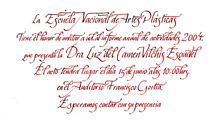 La Escuela Nacional de Artes Plásticas
Tiene el honor de invitar a ud. al informe anual de actividades 2004,
que presenta la Dra. Luz del Carmen Vilchis Esquivel
El acto tendrá lugar el día 15 de junio a las 10:00 hrs.
en el Auditorio Francisco Goitia
Esperamos contar con su presencia